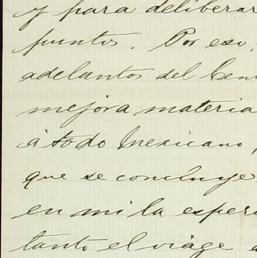 y para deliberar
puntos. Por eso,
adelantos del
mejora materia
á todo Mexicano,
que se concluye
en mi la esper
tanto el viage a